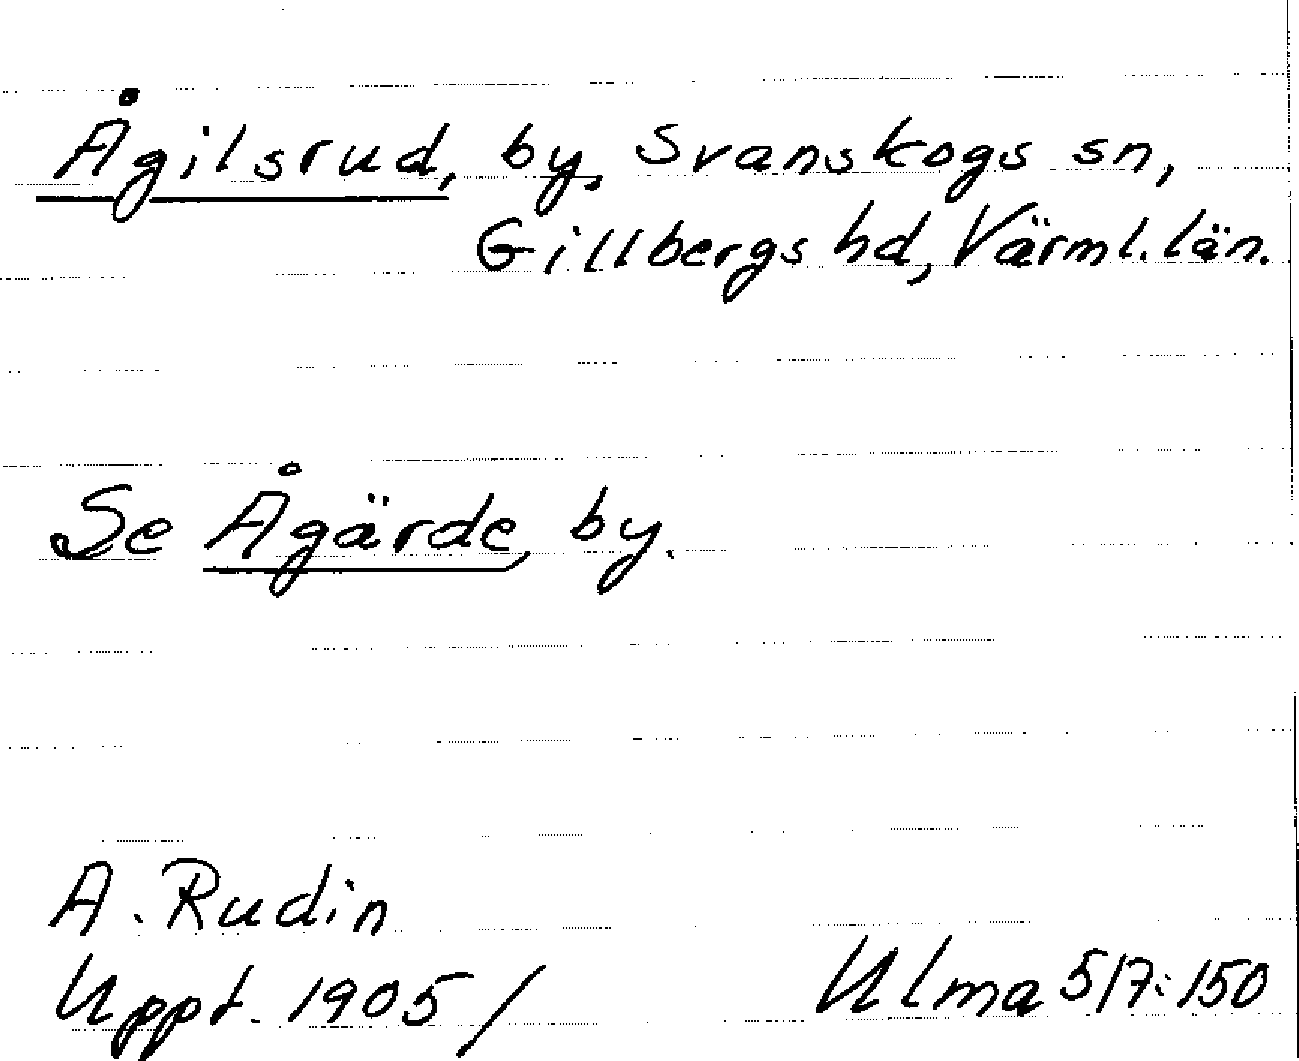 Ågilsrud, by, Svanskogs sn,
Gillbergs hd, Värml. län.
Se Ågärde, by.
A. Rudin
Uppt. 1905 /
Ulma 517:150